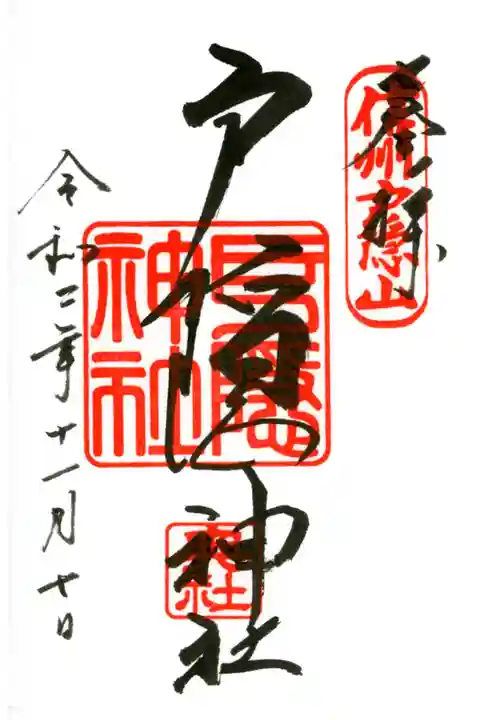 奉拝
信州戸隠山
戸隠神社
戸隠神社
令和二年十一月七日